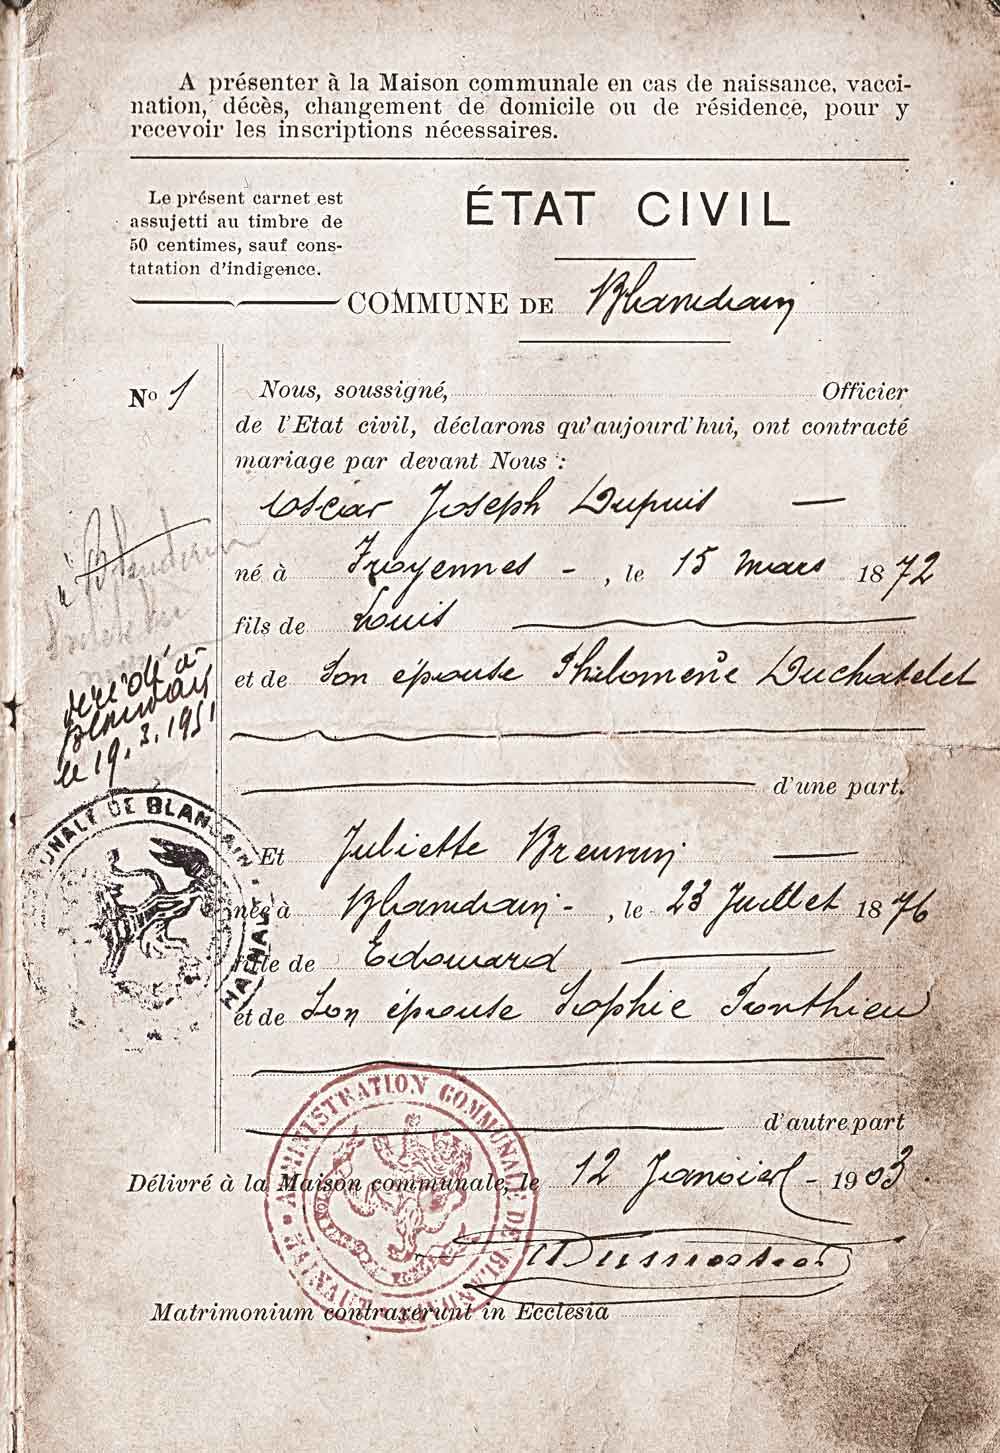 A présenter à la Maison communale en cas de naissance, vacci-
nation, décès, changement de domicile ou de résidence, pour y
recevoir les inscriptions nécessaires.
Le présent carnet est
assujetti au timbre de
50 centimes, sauf cons-
tatation d'indigence.
ÉTAT CIVIL
COMMUNE DE Blandain
No 1
Nous, soussigné, Officier
de l'Etat civil, déclarons qu'aujourd'hui, ont contracté
mariage par devant Nous :
Oscar Joseph Dupuis —
né à Froyennes - , le 15 mars 1872
fils de Louis
et de Son épouse Philomène Duchatelet
d'une part.
décédé à
Blandain
le 19.3.1951
UNALE DE BLANDAIN HAINAUT
Et Juliette —
née à Blandain - , le 23 Juillet 1876
fille de Edouard
et de Son épouse Sophie Ponthieu
d'autre part
Délivré à la Maison communale, le 12 Janvier - 1903.
ADMINISTRATION COMMUNALE DE BLANDAIN
Matrimonium contraxerunt in Ecclesia